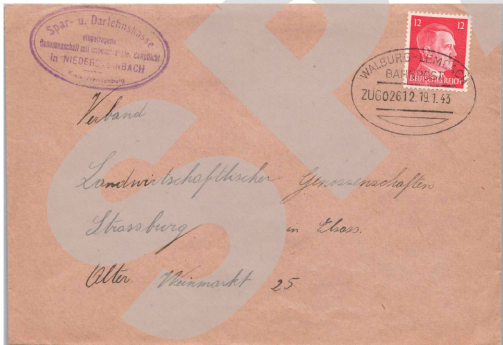 Spar- u. Darlehnskasse
eingetragene
Genossenschaft mit unbeschr. Haftpflicht
in NIEDERSTEINBACH
12 12
DEUTSCHES REICH
WALBURG-LEMBACH
BAHNPOST
ZUG02612.19.1.43
Verband
Landwirtschaftlischer Genossenschaften
Strassburg in Elsass.
Alter Weinmarkt 25